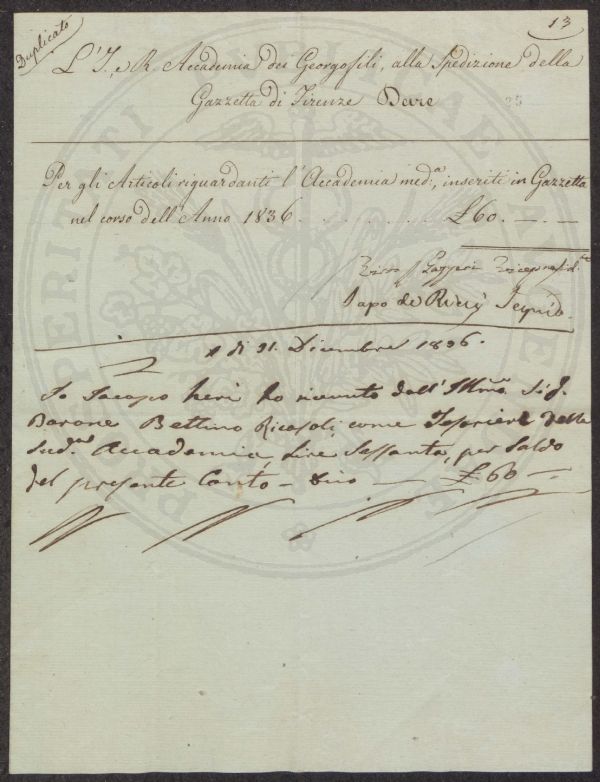 Duplicato
13
L'I. e R. Accademia dei Georgofili, alla Spedizione della
Gazzetta di Firenze Dare
25
Per gli Articoli riguardanti l'Accademia med:ª, inseriti in Gazzetta
nel corso dell'Anno 1836 . . . . . . £60. — —
Visto Gazzeri
Lapo de Ricci
A di 31. Dicembre 1836.
Io Jacopo Neri ho ricevuto dall'Illmo. Sig.
Barone Bettino Ricasoli come Tesoriere della
Sud.ª Accademia, Lire Sessanta, per Saldo
del presente Conto — Dico — £60 —
PROSPERITATI PUBLICAE AUGENDAE